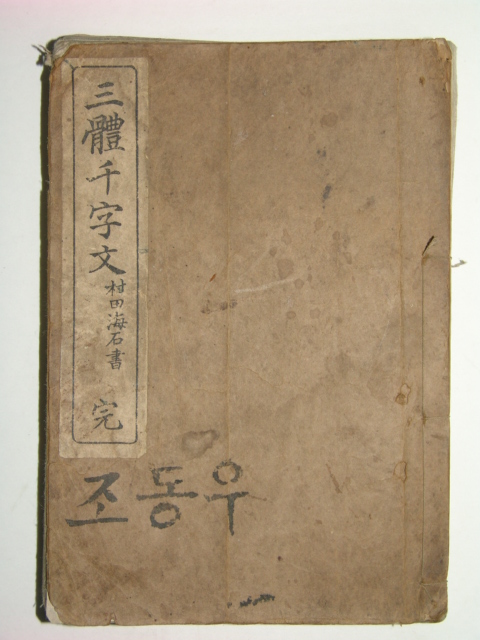 三體千字文
村田海石書
完
조동우